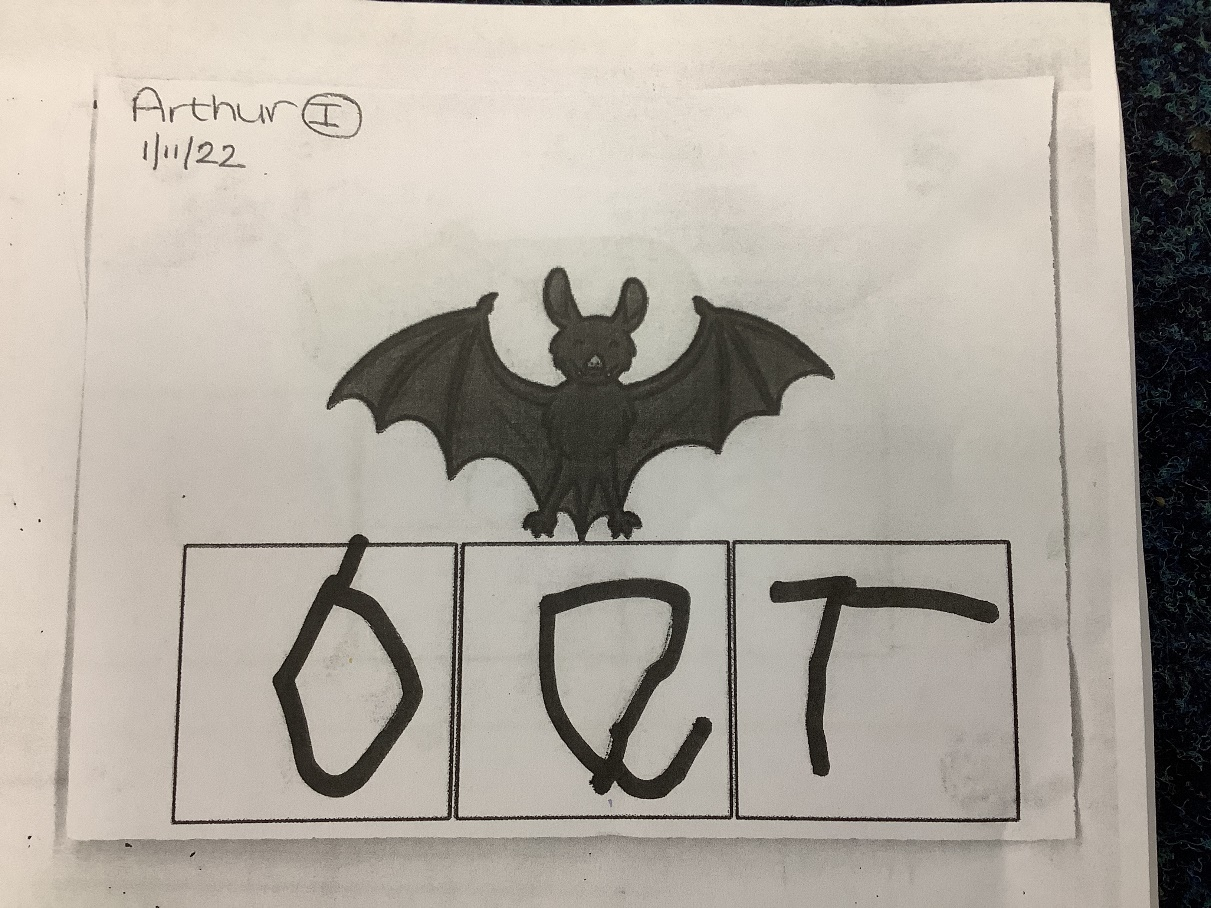 Arthur I
1/11/22
b a T